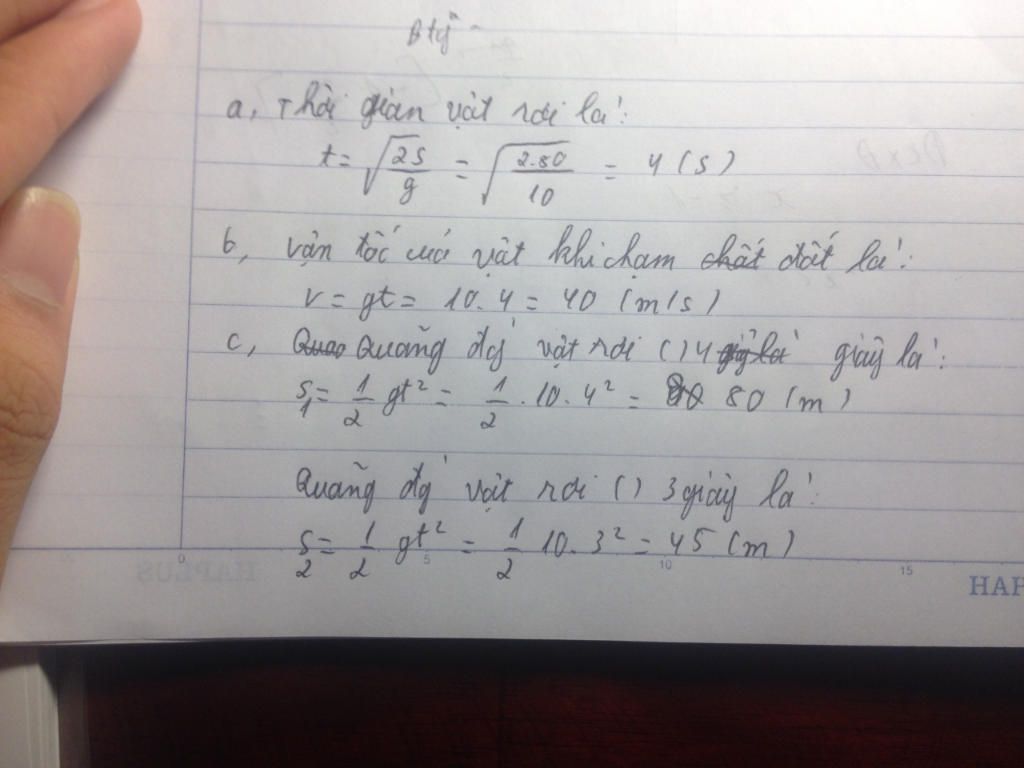 a, Thời gian vật rơi là:
t = √(2S/g) = √(2.80/10) = 4 (s)
b, vận tốc của vật khi chạm chất đất là:
v = gt = 10.4 = 40 (m/s)
c, Quao Quãng đg vật rơi () 4 giây là giây là:
S1 = 1/2 gt² = 1/2 . 10. 4² = 80 (m)
Quãng đg vật rơi () 3 giây là:
S2 = 1/2 gt² = 1/2 10. 3² = 45 (m)
0 5 10 15
HAPLUS